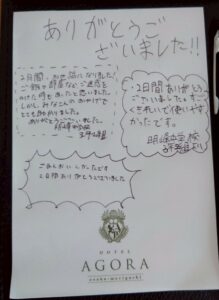 ありがとうご
ざいました!!
2日間お世話になりました。
ご飯や部屋などご迷惑を
かけた所もあったと思いました。
しかし、みなさんのおかげで
とても助かりました。
ありがとうございました。
2日間ありがとう
ございました。
くださいて使いやす
かったです。
明峰中学校
ごはんおいしかったです
2日間ありがとうございました
HOTEL
AGORA
osaka-moriguchi